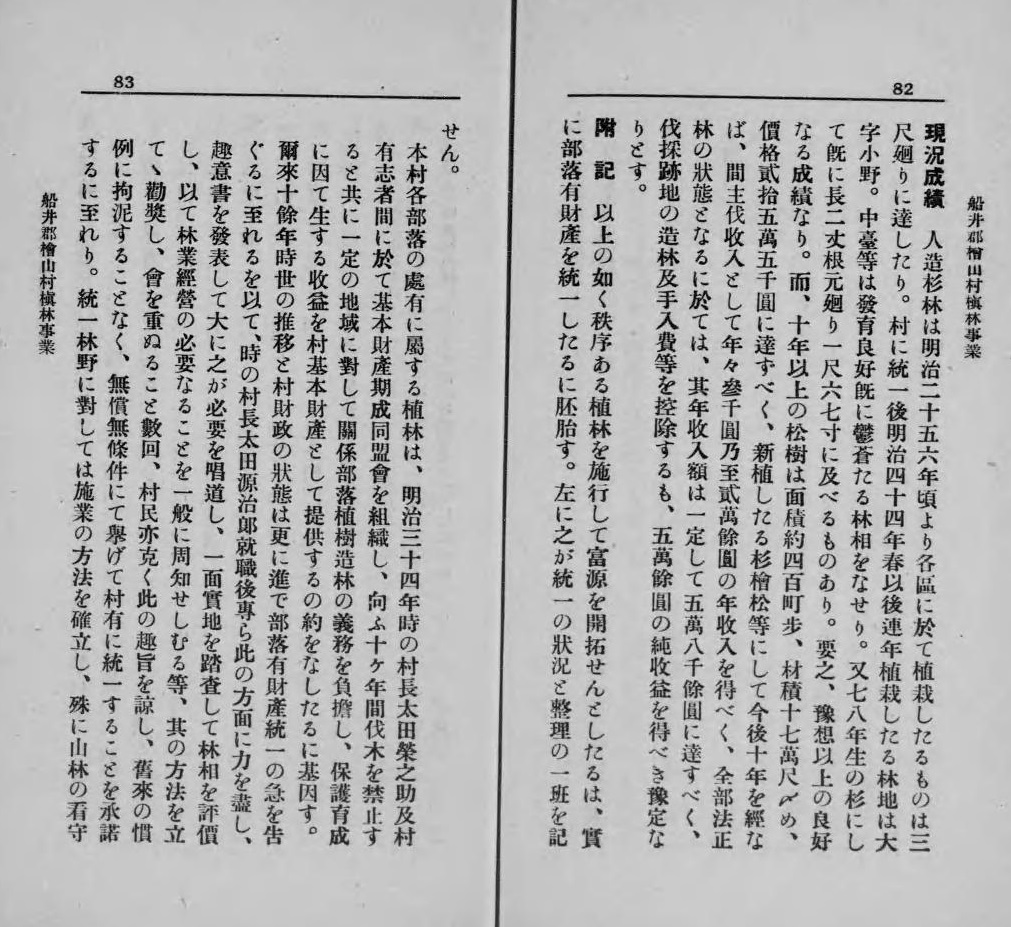 82
船井郡檜山村植林事業
現況成績　人造杉林は明治二十五六年頃より各區に於て植栽したるものは三
尺廻りに達したり。村に統一後明治四十四年春以後連年植栽したる林地は大
字小野。中臺等は發育良好旣に鬱蒼たる林相をなせり。又七八年生の杉にし
て旣に長二丈根元廻り一尺六七寸に及べるものあり。要之、豫想以上の良好
なる成績なり。而、十年以上の松樹は面積約四百町步、材積十七萬尺〆め、
價格貳拾五萬五千圓に達すべく、新植したる杉檜松等にして今後十年を經な
ば、間主伐收入として年々參千圓乃至貳萬餘圓の年收入を得べく、全部法正
林の狀態となるに於ては、其年收入額は一定して五萬八千餘圓に達すべく、
伐採跡地の造林及手入費等を控除するも、五萬餘圓の純收益を得べき豫定な
りとす。
附　記　以上の如く秩序ある植林を施行して富源を開拓せんとしたるは、實
に部落有財產を統一したるに胚胎す。左に之が統一の狀況と整理の一班を記
83
せん。
本村各部落の處有に屬する植林は、明治三十四年時の村長太田榮之助及村
有志者間に於て基本財產期成同盟會を組織し、向ふ十ケ年間伐木を禁止す
ると共に一定の地域に對して關係部落植樹造林の義務を負擔し、保護育成
に因て生する收益を村基本財產として提供するの約をなしたるに基因す。
爾來十餘年時世の推移と村財政の狀態は更に進で部落有財產統一の急を吿
ぐるに至れるを以て、時の村長太田源治郞就職後專ら此の方面に力を盡し、
趣意書を發表して大に之が必要を唱道し、一面實地を踏査して林相を評價
し、以て林業經營の必要なることを一般に周知せしむる等、其の方法を立
てゝ勸奬し、會を重ぬること數回、村民亦克く此の趣旨を諒し、舊來の慣
例に拘泥することなく、無償無條件にて擧げて村有に統一することを承諾
するに至れり。統一林野に對しては施業の方法を確立し、殊に山林の看守
船井郡檜山村植林事業